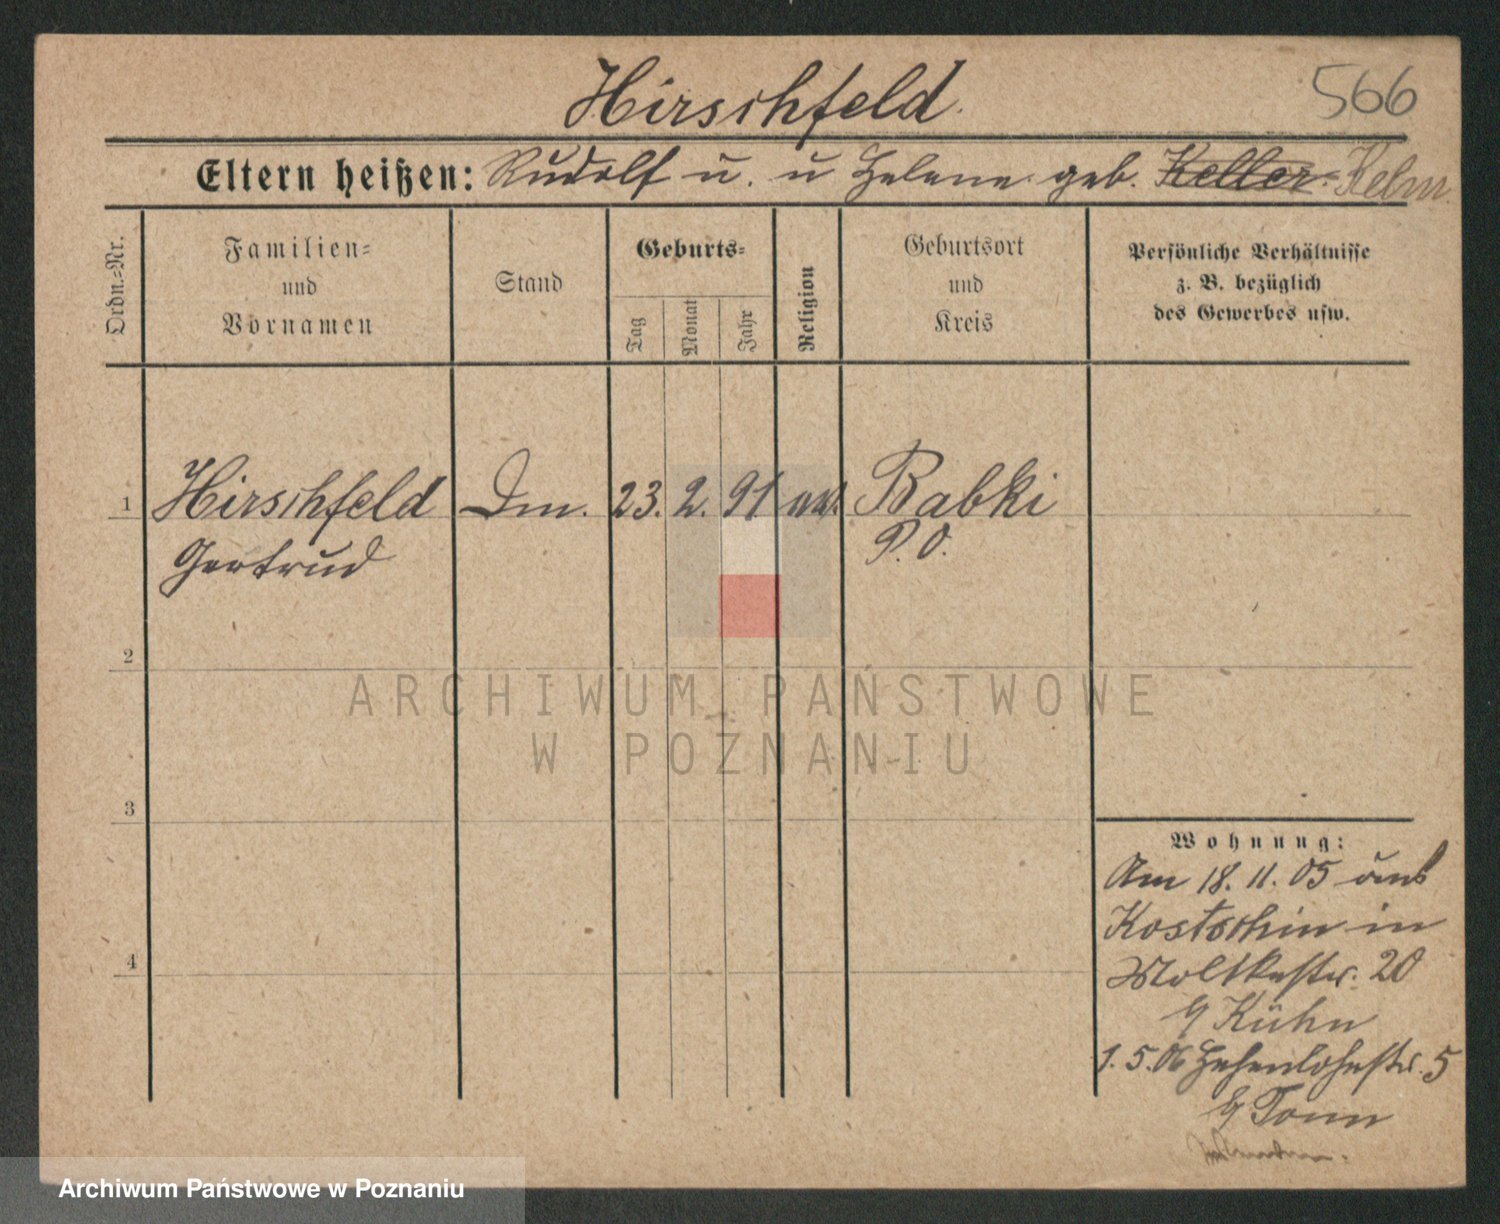 Hirschfeld.
566
Eltern heißen: Rudolf u. u Helene geb. Keller Kelm.
Ordn.=Nr.
Familien=
und
Vornamen
Stand
Geburts=
Tag
Monat
Jahr
Religion
Geburtsort
und
Kreis
Persönliche Verhältnisse
z. B. bezüglich
des Gewerbes usw.
1 Hirschfeld Dm. 23. 2. 91 Babki
Gertrud P. O.
2
3
4
Wohnung:
Am 18. 11. 05 aus
Kostschin in
Moltkestr. 20
Kühn
1. 5. 06 Hohenlohestr. 5
Tonn
ARCHIWUM PAŃSTWOWE
W POZNANIU
Archiwum Państwowe w Poznaniu